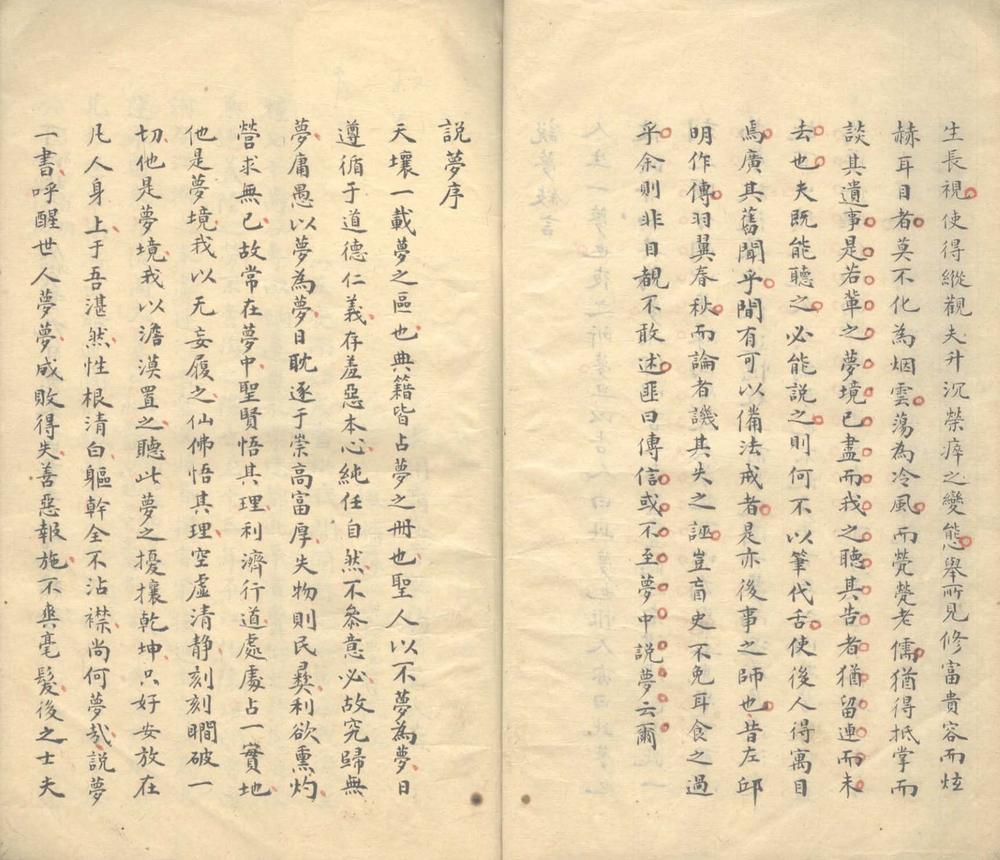 生長視使得縱觀夫升沉榮瘁之變態舉所見修富貴容而炫
赫耳目者莫不化為烟雲蕩為冷風而煢煢老儒猶得抵掌而
談其遺事是若軰之夢境已盡而我之聽其告者猶留連而未
去也夫既能聽之必能說之則何不以筆代舌使後人得寓目
焉廣其舊聞乎間有可以備法戒者是亦後事之師也昔左邱
明作傳羽翼春秋而論者譏其失之誣豈盲史不免耳食之過
乎余則非目覩不敢述匪曰傳信或不至夢中說夢云爾
說夢序
天壤一載夢之區也典籍皆占夢之冊也聖人以不夢為夢日
遵循于道德仁義存羞惡本心純任自然不叅意必故究歸無
夢庸愚以夢為夢日耽逐于崇高富厚失物則民彝利欲熏灼
營求無已故常在夢中聖賢悟其理利濟行道處處占一實地
他是夢境我以无妄履之仙佛悟其理空虛清静刻刻瞷破一
切他是夢境我以澹漠置之聽此夢之擾攘乾坤只好安放在
凡人身上于吾湛然性根清白軀幹全不沾襟尚何夢哉說夢
一書呼醒世人夢夢成敗得失善惡報施不爽毫髮後之士夫